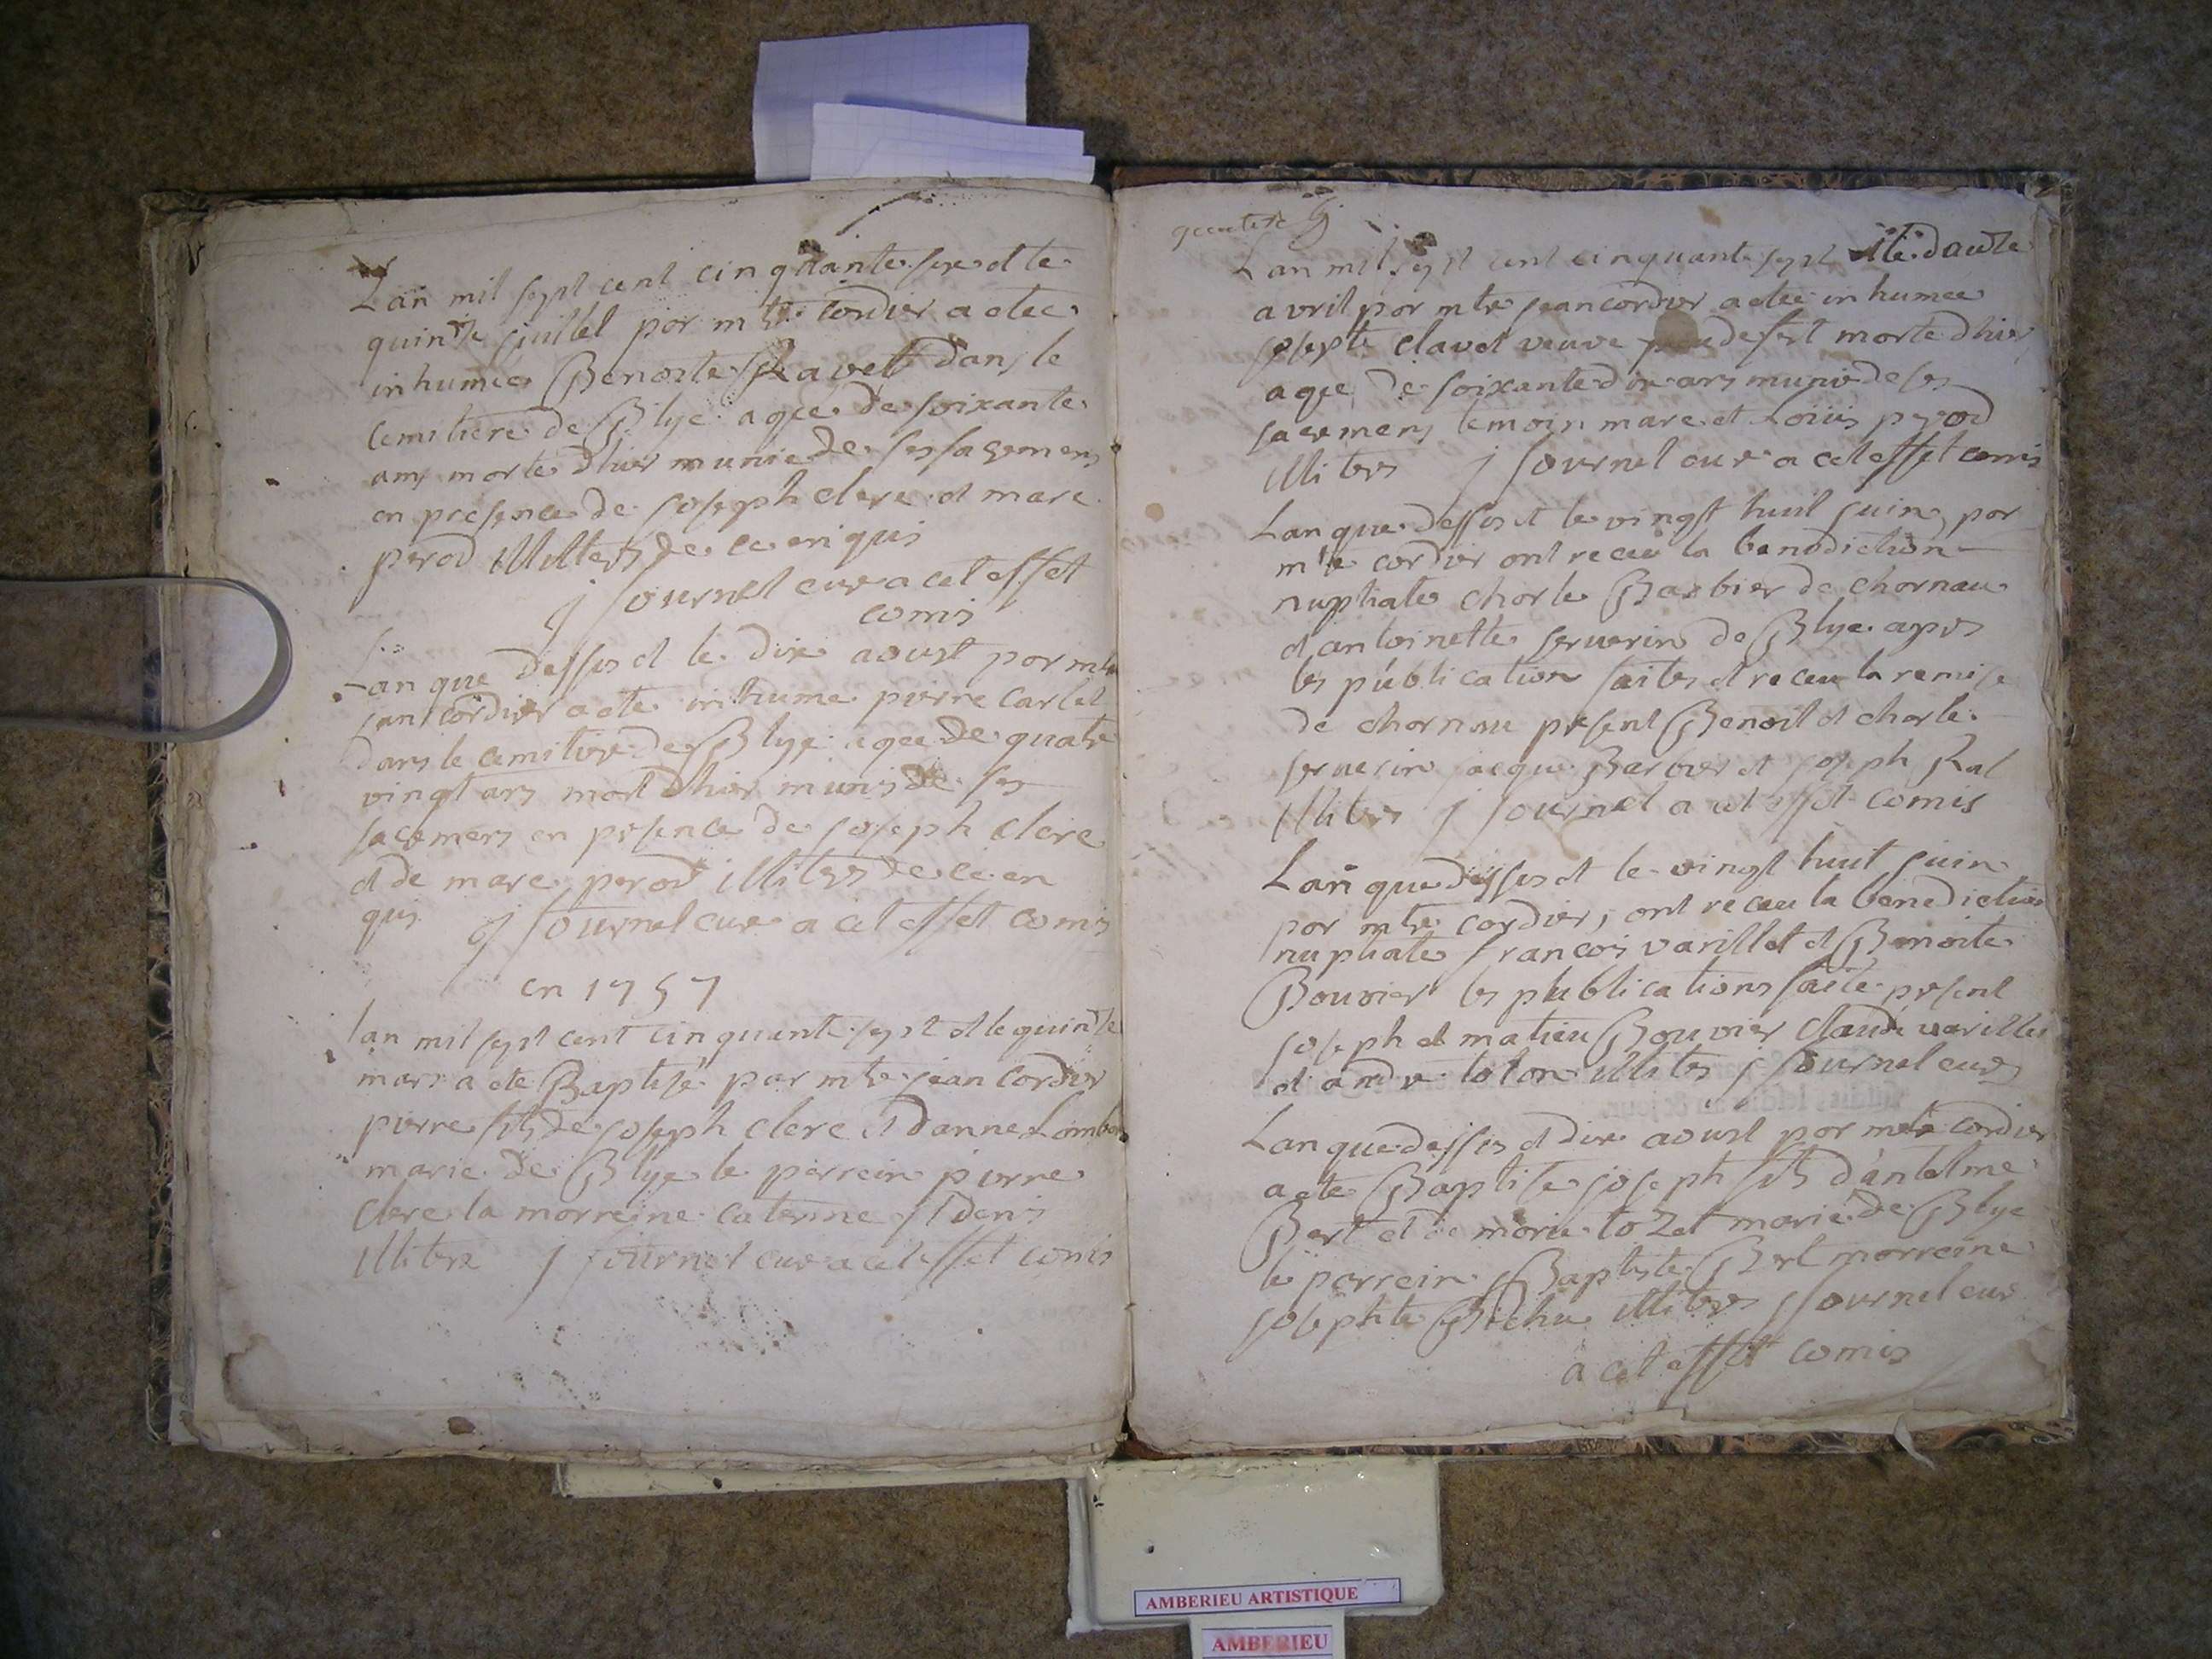 Lan mil sept cent cinquante sixe et le
quinze juillet par mtre cordier a etee
inhumee Benoite Ravet dans le
cemitiere de Blye agee de soixante
ans morte dhier munie de ses sacremens
en presence de joseph clerc et marc
perod illiteres de ce enquis
j journel cure a cet effet
comis
Lan que dessus et le dixe aoust par mtre
jean cordier a ete inhume pierre carlet
dans le cemitiere de Blye agee de quatre
vingt ans mort dhier munis de ses
sacremens en presence de joseph clerc
et de marc perod illiteres de ce en
quis j journel cure a cet effet comis
en 1757
lan mil sept cent cinquante sept et le quinze
mars a ete Baptisé par mtre jean cordier
pierre fils de joseph clerc et danne Lombar
marie de Blye le parrein pierre
clerc la marreine caterine st denis
illitere j journel cure a cet effet comis
Lan mil sept cent cinquante sept et le douze
avril par mtre jean cordier a etee inhumee
josepte clavet veuve morte dhier
agee de soixante dixe ans munie de ses
sacremens temoin marc et Loüis perod
illiteres j journel cure a cet effet comis
Lan que dessus et le vingt huit juin par
mtre cordier ont receu la benediction
nuptiale charle Barbier de charnau
et antoinette serverin de Blye apres
les publication faites et receu la remise
de charnau present Benoit et charle
serverin jacque Barbier et joseph Ral
illiteres j journel a cet effet comis
Lan que dessus et le vingt huit juin
par mtre cordier, ont receu la benediction
nuptiale francois varillet et Benoite
Bouvier les publications faite present
joseph et matieu Bouvier claude varillet
et andre toton illiteres j journel cure
Lan que dessus et dixe aoust par mtre cordier
a ete Baptise joseph fils d'antelme
Bert et de marie tozet marié de Blye
le parrein Baptiste Bert marreine
josephte Bichu illiteres j journel cure
a cet effet comis
AMBERIEU ARTISTIQUE
AMBERIEU